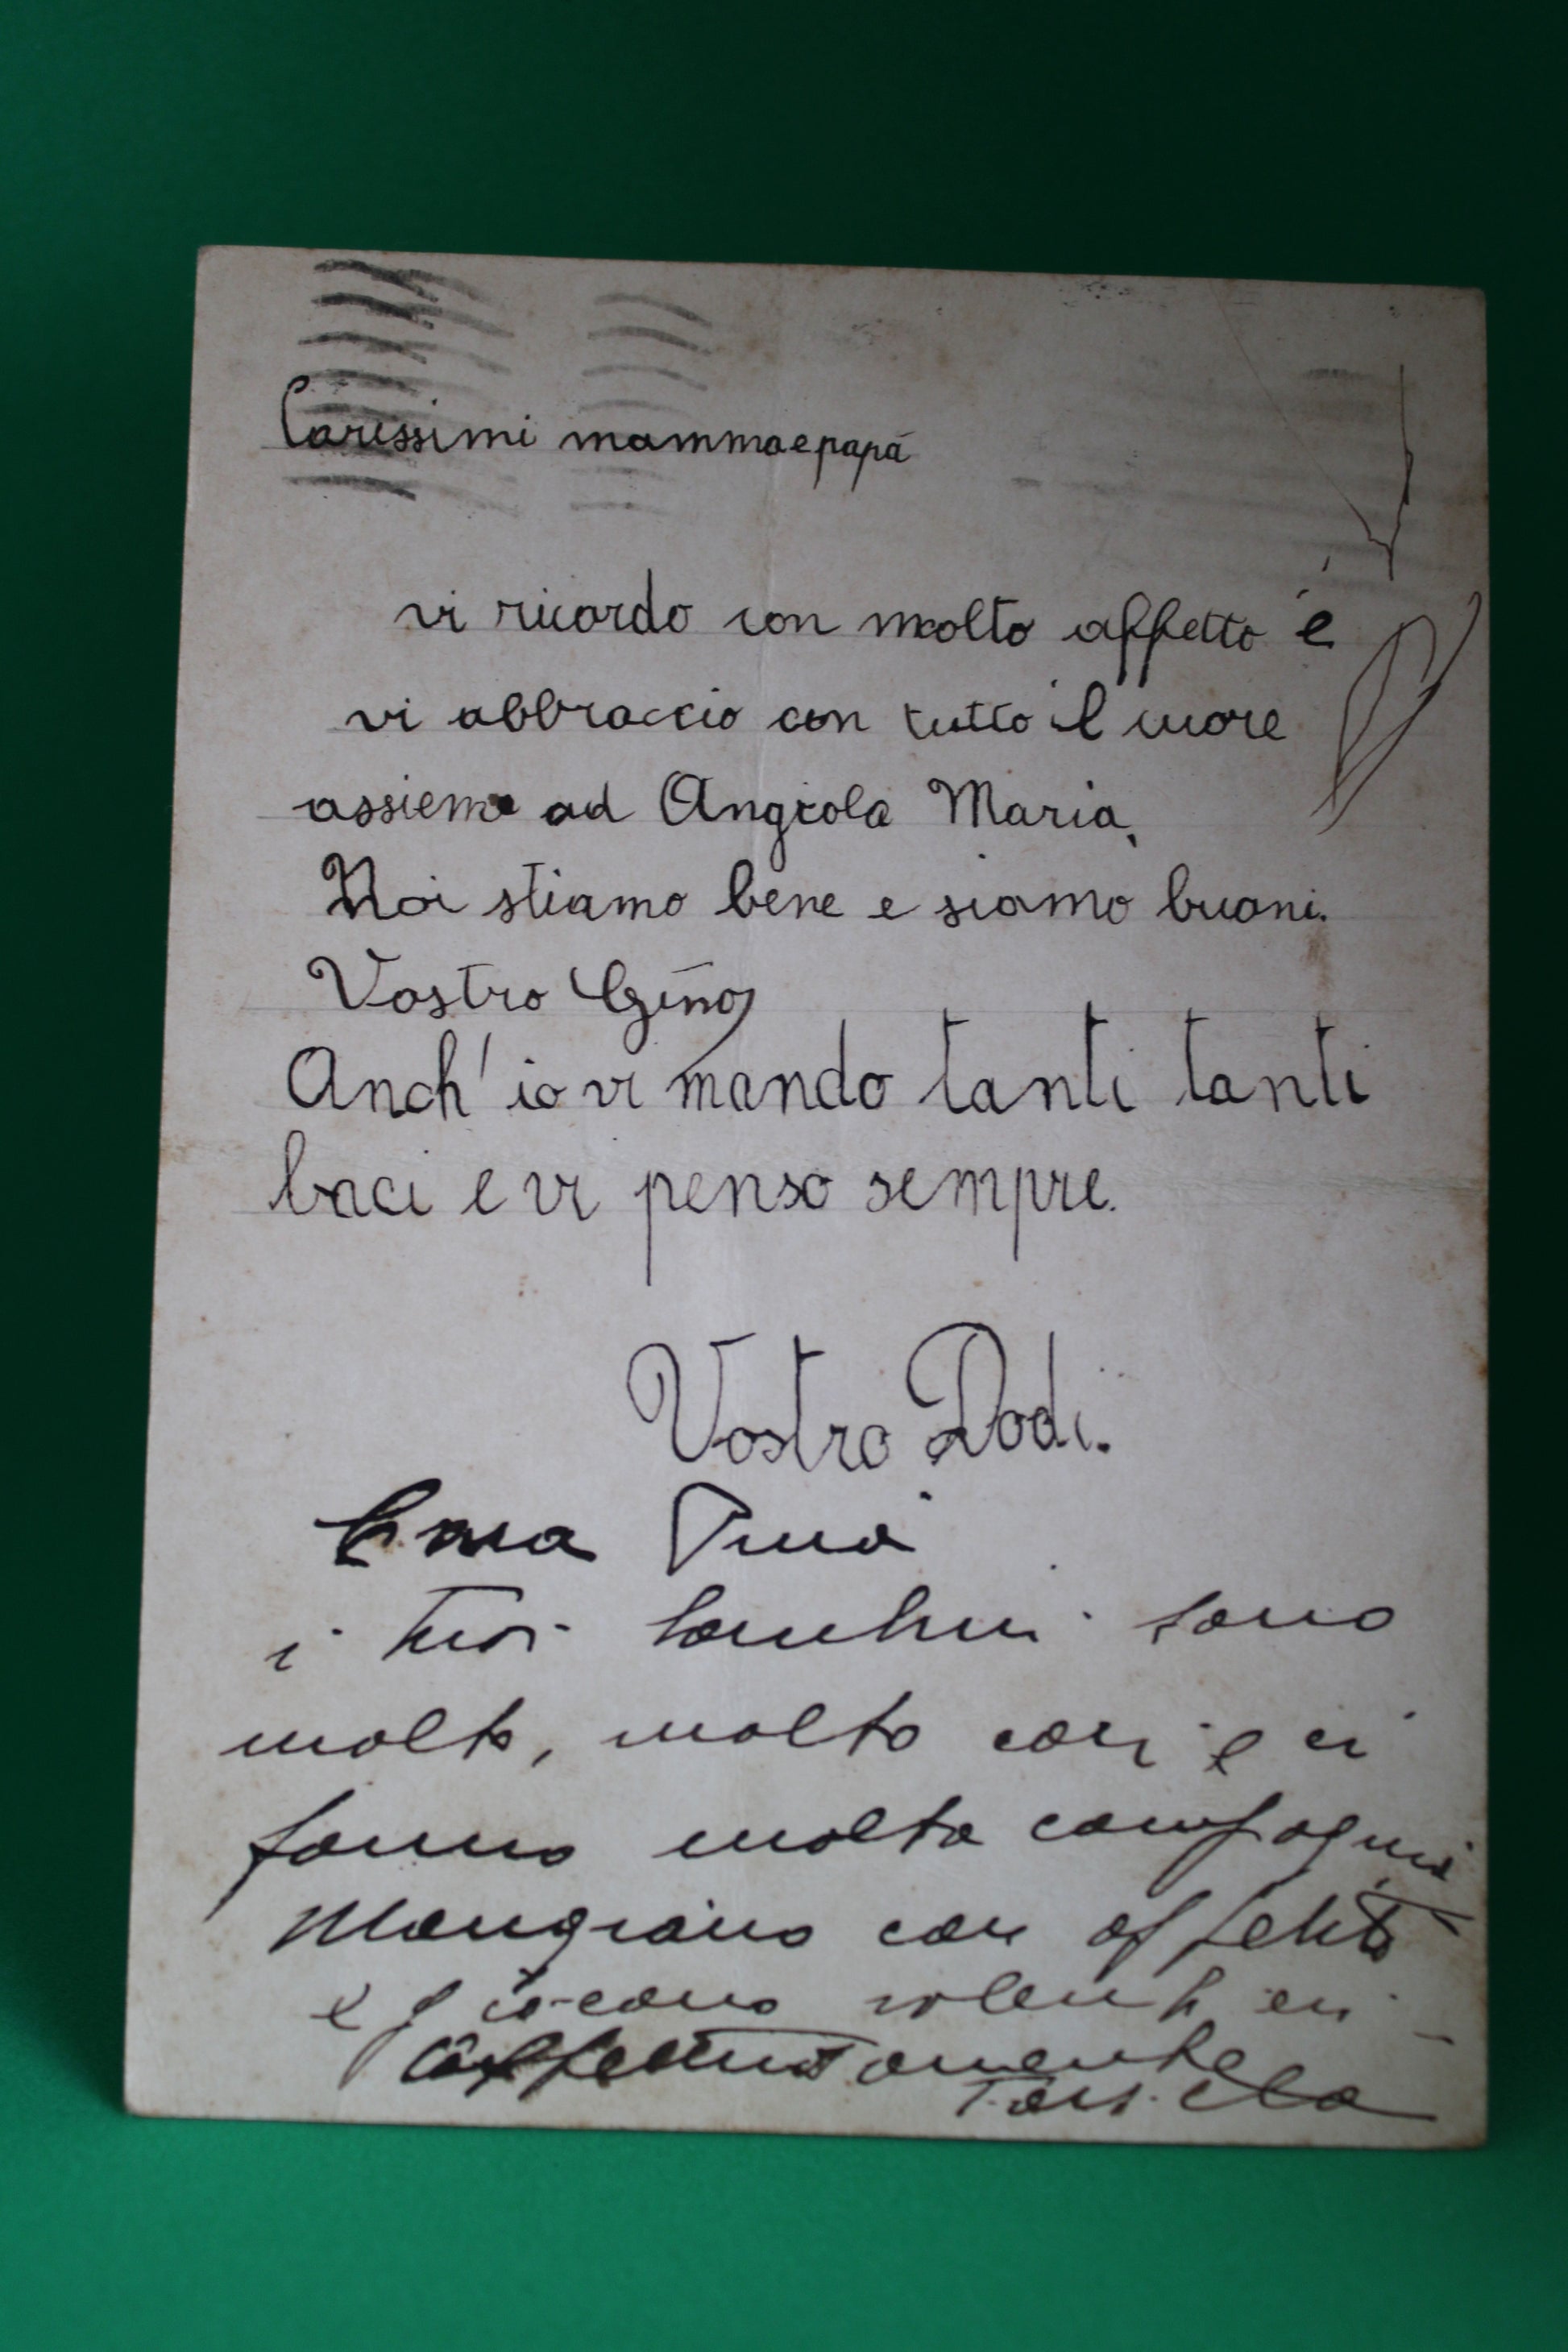 Carissimi mamma e papà
vi ricordo con molto affetto e
vi abbraccio con tutto il cuore
assieme ad Angiola Maria.
Noi stiamo bene e siamo buoni.
Vostro Gino
Anch'io vi mando tanti tanti
baci e vi penso sempre.
Vostro Dodi.
Cara Pina
i tuoi bambini sono
molto, molto cari e ci
fanno molta compagnia
Mangiano con appetito
e giocano volentieri -
Affettuosamente